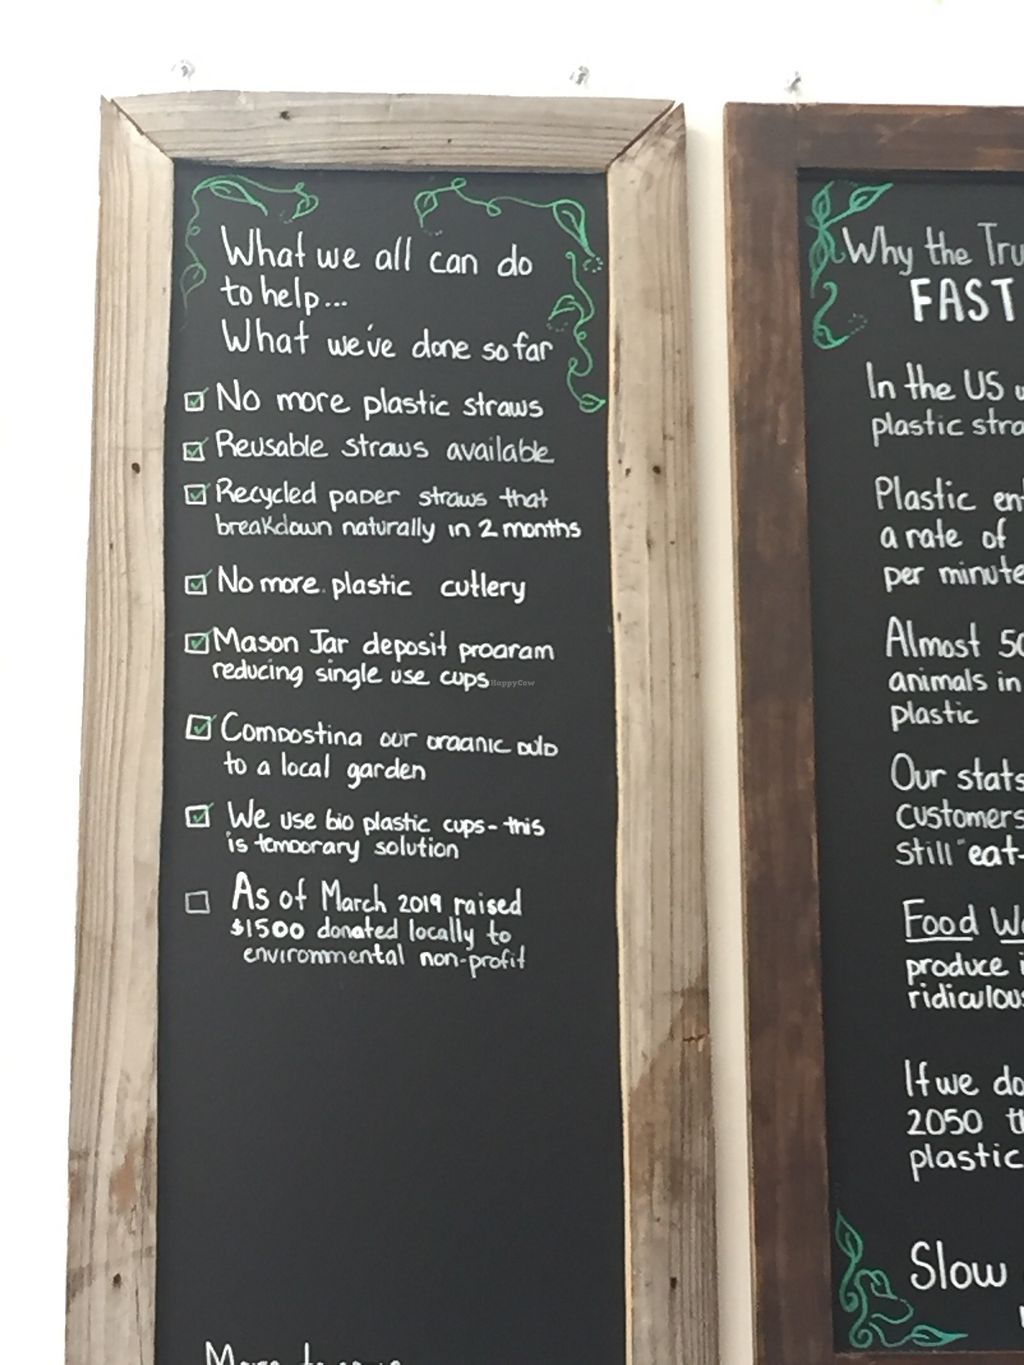 What we all can do
to help...
What we've done so far
No more plastic straws
Reusable straws available
Recycled paper straws that
breakdown naturally in 2 months
No more plastic cutlery
Mason Jar deposit program
reducing single use cups
HappyCow
Composting our organic pulp
to a local garden
We use bio plastic cups - this
is temporary solution
As of March 2019 raised
$1500 donated locally to
environmental non-profit
More to
Why the Tru
FAST
In the US
plastic stra
Plastic en
a rate of
per minute
Almost 50
animals in
plastic
Our stats
customers
still "eat-
Food W
produce i
ridiculous
If we do
2050 t
plastic
Slow